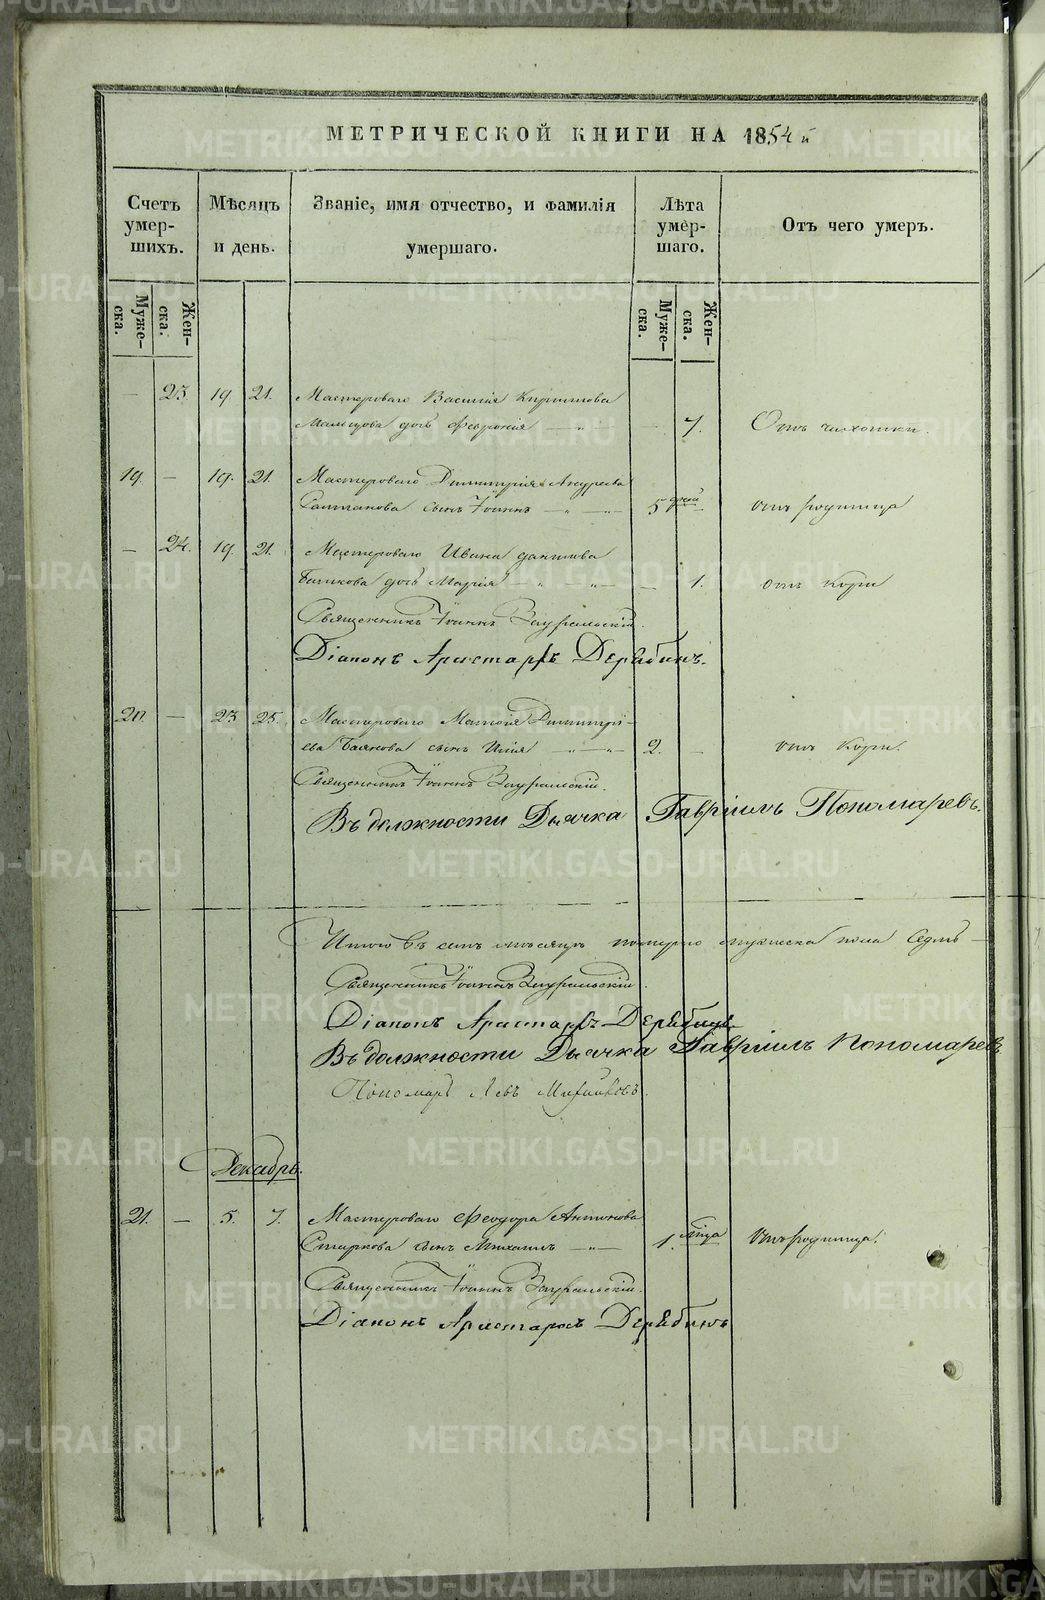 МЕТРИЧЕСКОЙ КНИГИ НА 1854 й
Счетъ умер-шихъ.
Мѣсяцъ и день.
Званіе, имя отчество, и фамилія умершаго.
Лѣта умер-шаго.
Отъ чего умеръ.
Муже-ска. Жен-ска. Муже-ска. Жен-ска.
— 23. 19 21. Мастероваго Василія Кириллова
дочь Феѵронія — „ — 7. Отъ чахотки.
19 — 19. 21. Мастероваго Димитрія Андреева
сынъ Іоаннъ — „ — 5 дней отъ родимца
— 24. 19 21. Мастероваго Ивана Данилова
дочь Марія — „ — „ — 1. отъ кори
Священникъ Іоаннъ Зауральскій.
Діаконъ Аристархъ Дерябинъ.
20 — 23 25. Мастероваго Димитрі-
ева сынъ Илія — „ — 2. — отъ кори.
Священникъ Іоаннъ Зауральскій.
Въ должности Дьячка Гавріилъ Пономаревъ.
Итого въ семъ месяцѣ померло мужеска пола седмь —
Священникъ Іоаннъ Зауральскій.
Діаконъ Аристархъ Дерябинъ.
Въ должности Дьячка Гавріилъ Пономаревъ
Пономарь Левъ
Декабрь.
21. — 5. 7. Мастероваго Феодора Антонова
сынъ Михаилъ — „ — 1. мца Отъ родимца.
Священникъ Іоаннъ Зауральскій.
Діаконъ Аристархъ Дерябинъ
METRIKI.GASO-URAL.RU